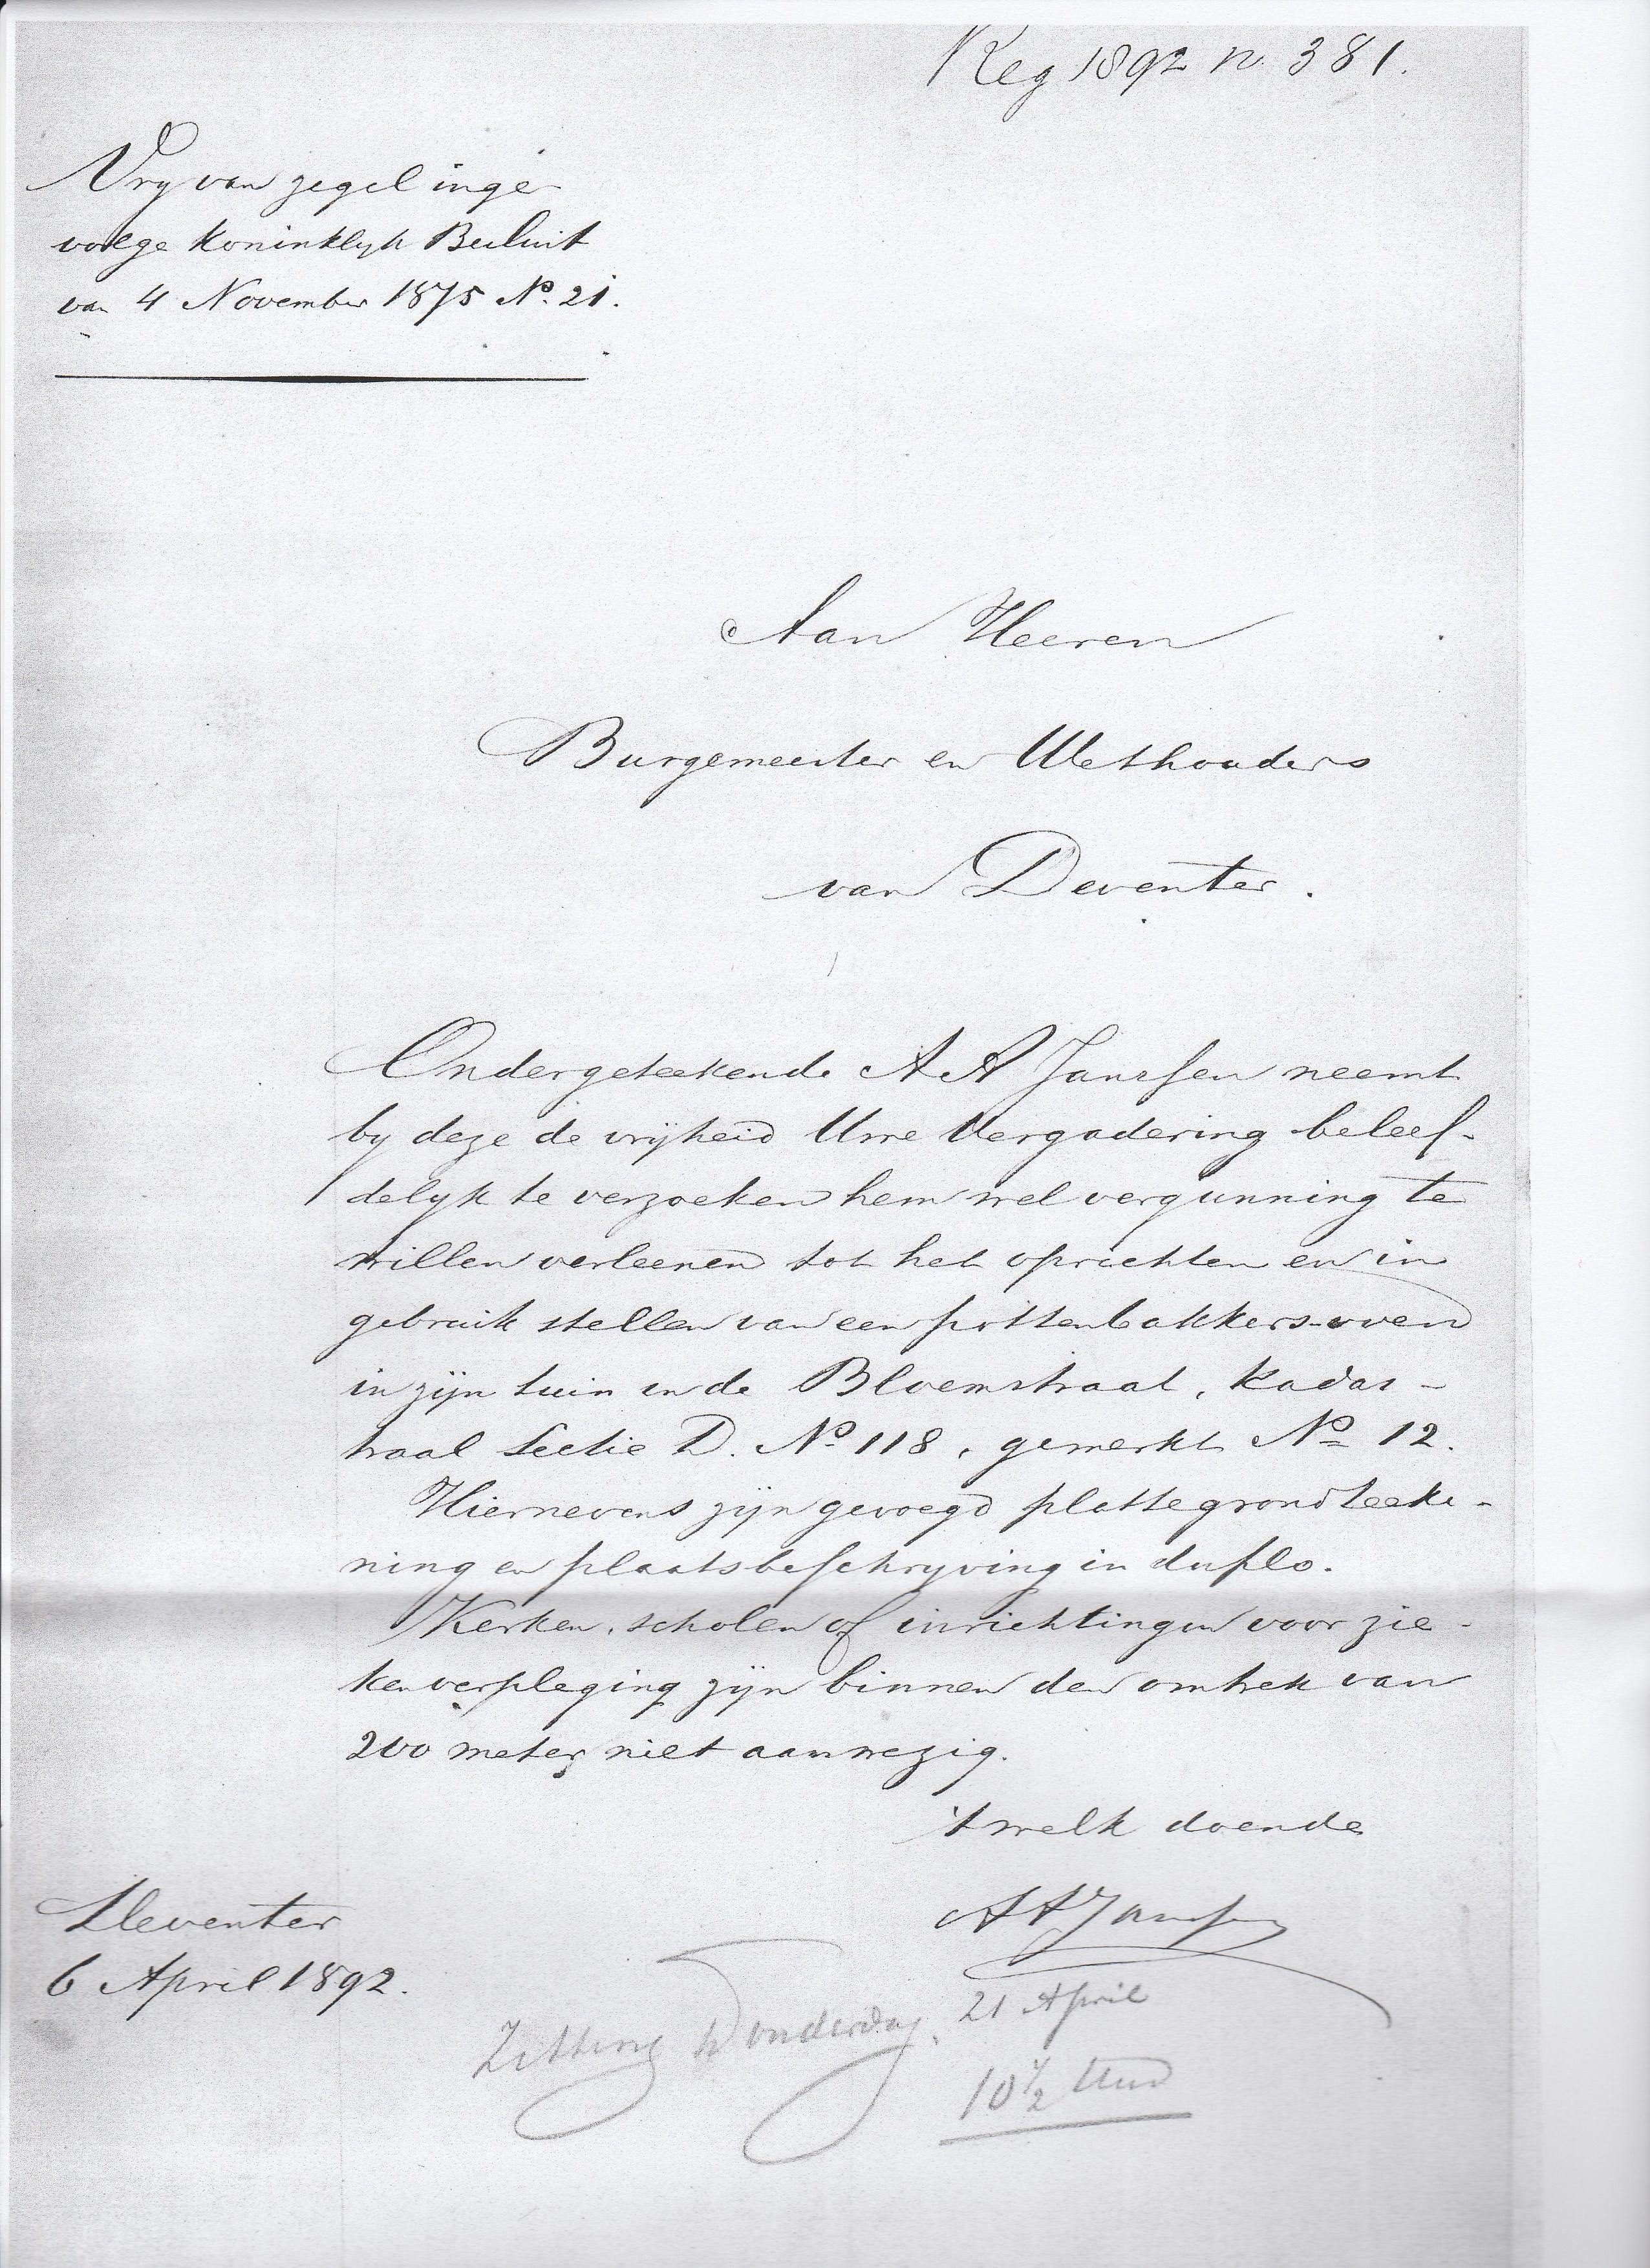 Reg 1892 n. 381.
Vry van zegel inge-
volge Koninklyk Besluit
van 4 November 1875 No. 21.
Aan Heeren
Burgemeester en Wethouders
van Deventer.
Ondergeteekende A A Janssen neemt
by deze de vrijheid Uwe Vergadering beleef-
delyk te verzoeken hem wel vergunning te
willen verleenen tot het oprichten en in
gebruik stellen van een pottenbakkers-oven
in zijn tuin in de Bloemstraat, Kadas-
traal Sectie D. No. 118, gemerkt No. 12.
Hiernevens zijn gevoegd plattegrondteeke-
ning en plaatsbeschryving in duplo.
Kerken, scholen of inrichtingen voor zie-
kenverpleging zijn binnen den omtrek van
200 meter niet aanwezig.
't welk doende
A A Janssen
Deventer
6 April 1892.
Zitting Donderdag 21 April
10 1/2 Uur